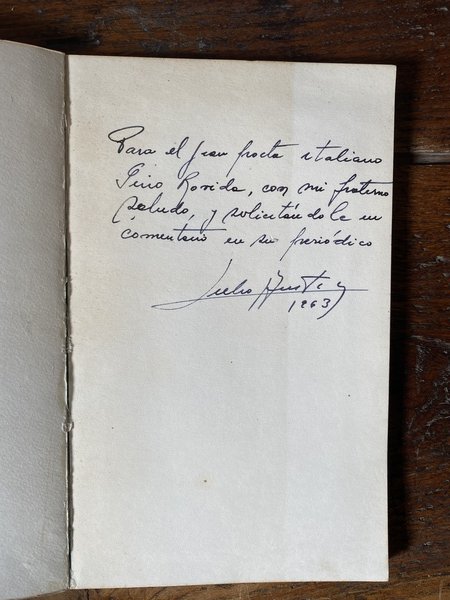 Para el gran poeta italiano
Gino Rovida, con mi fraterno
saludo, y solicitándole un
comentario en su periódico
Julio
1963